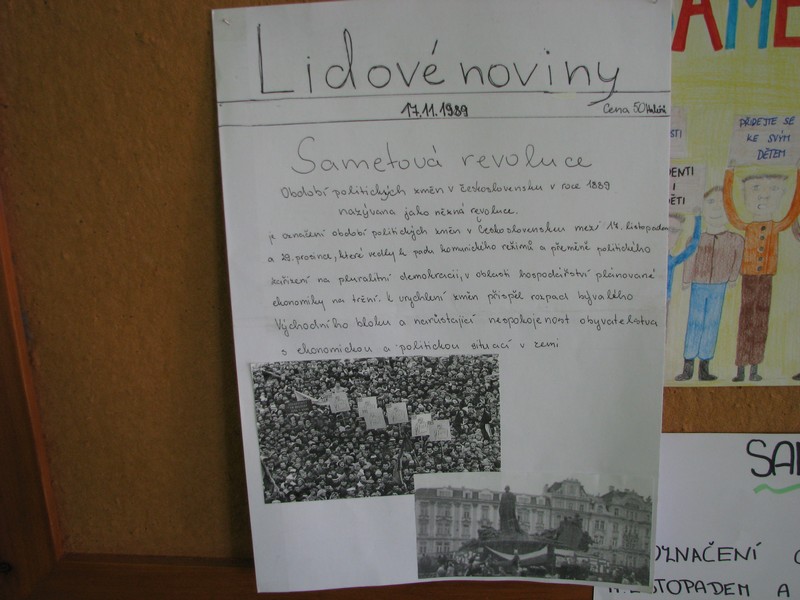 Lidové noviny
17.11.1989 Cena 50 Haléřů
Sametová revoluce
Období politických změn v Československu v roce 1989
nazývana jako něžná revoluce.
je označení období politických změn v Československu mezi 17. listopadem
a 29. prosince, které vedly k padu komunického režimů a přeměně politického
zařízení na pluralitní demokracii, v oblasti hospodářství plánované
ekonomiky na tržní. K urychlení změn přispěl rozpad bývalého
Východního bloku a narůstající nespokojenost obyvatelstva
s ekonomickou a politickou situací v zemi
SAME
PŘIDEJTE SE
KE SVÝM
DĚTEM
STI
DENTI
I
DĚTI
SA
OZNAČENÍ
LISTOPADEM A